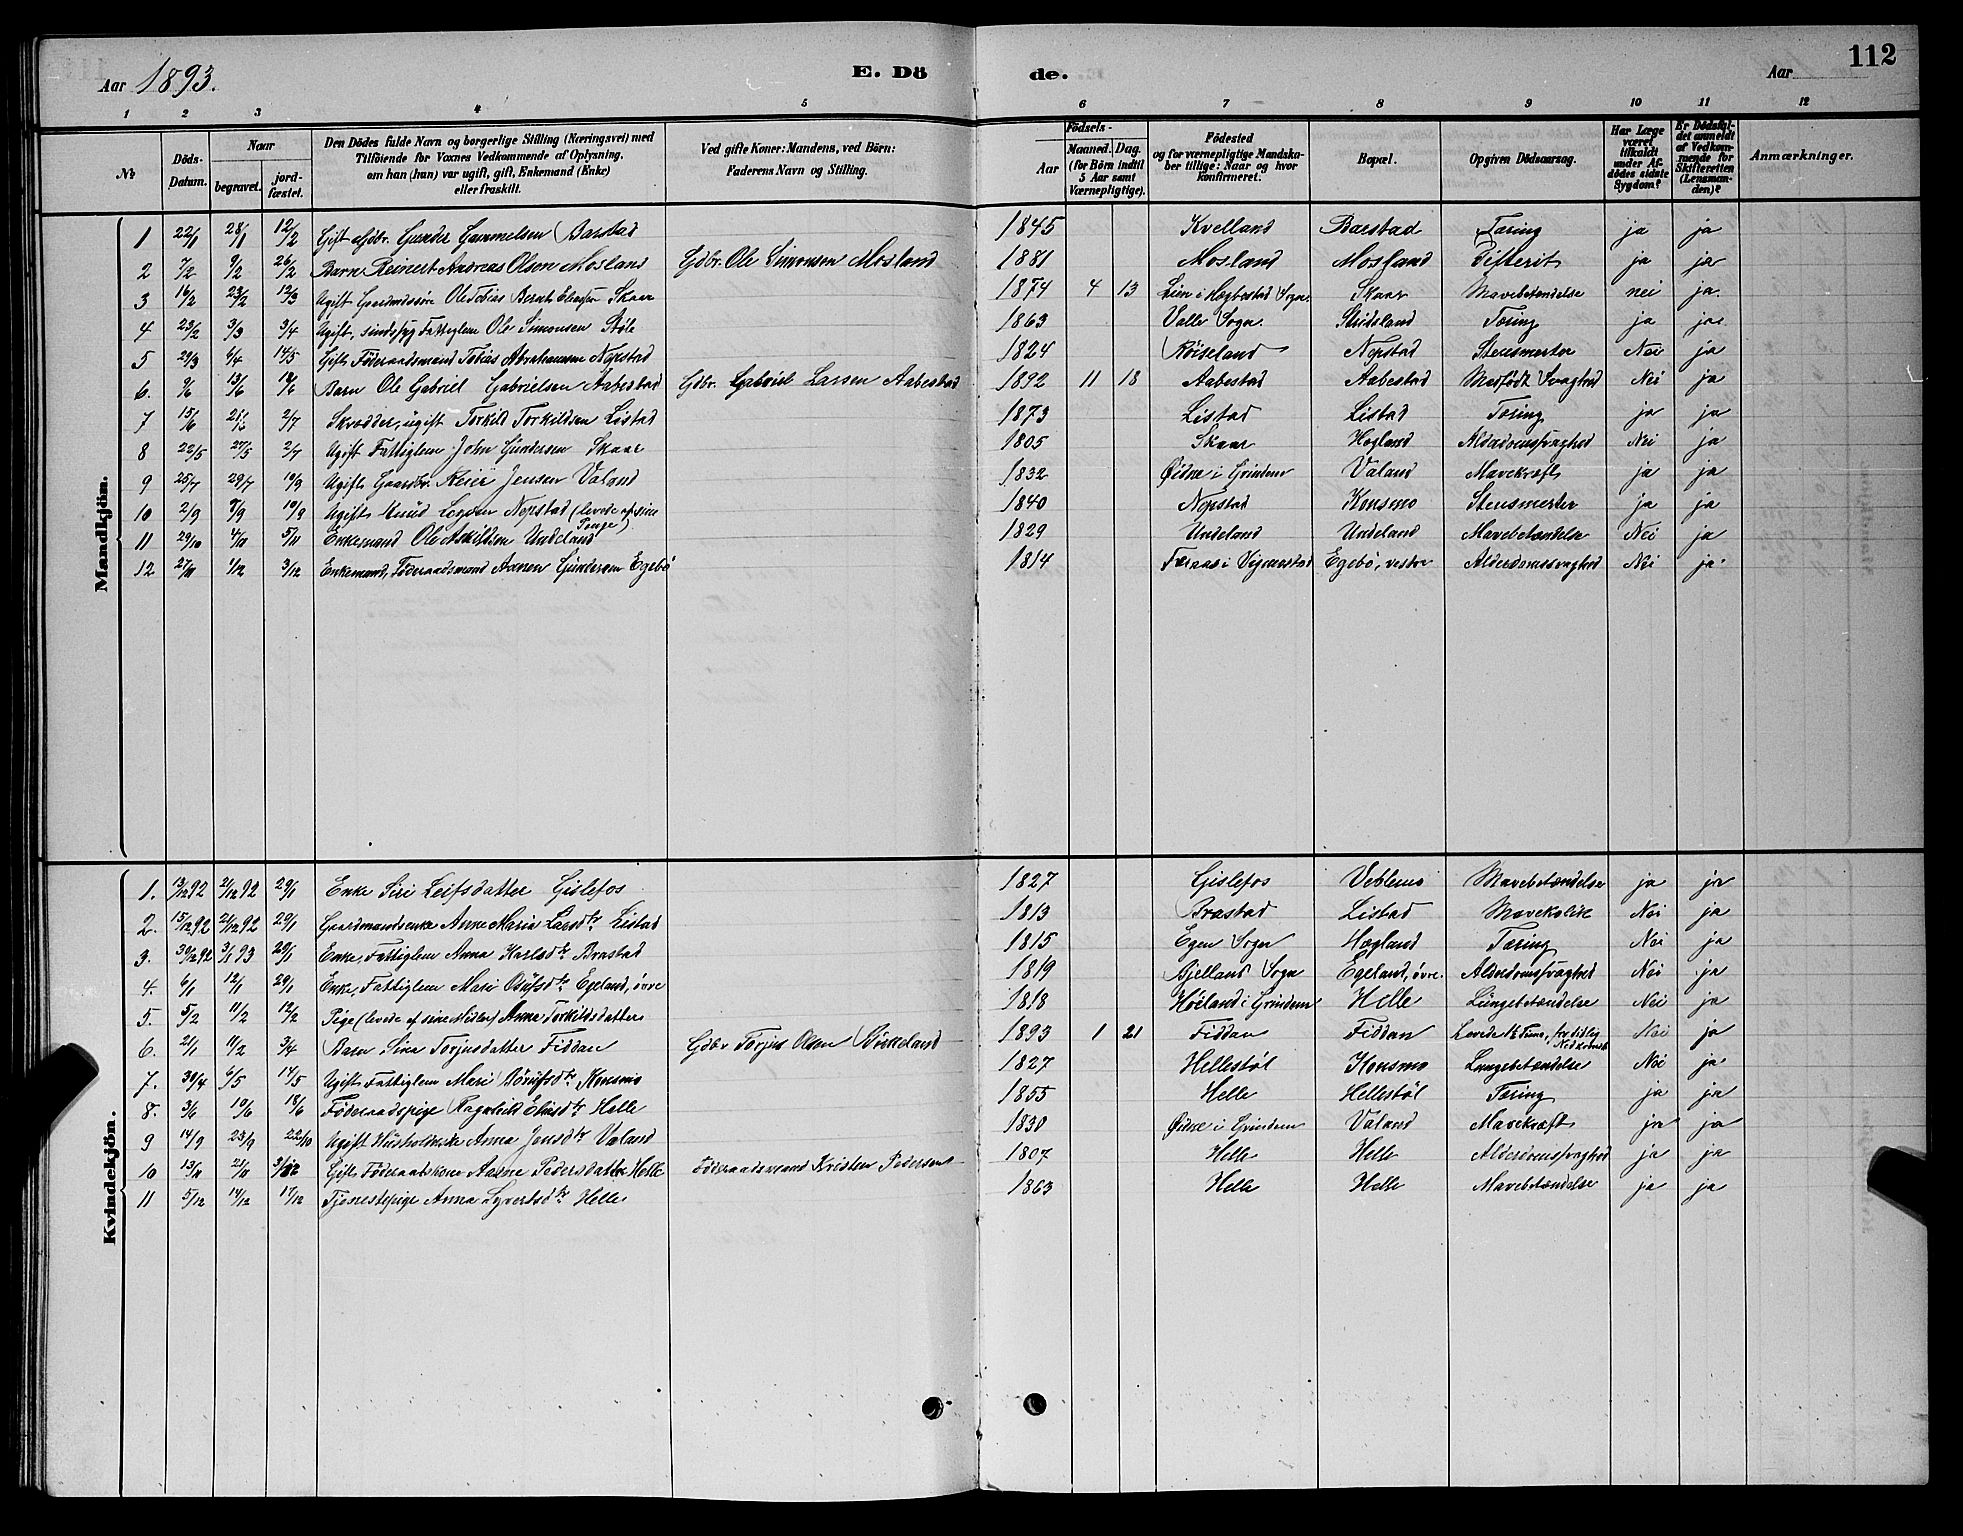 Aar 1893.
E. Dö
de.
Aar
112
1 2 3 4 5 6 7 8 9 10 11 12
No
Döds-Datum.
Naar
begravet.
jord-fæstet.
Den Dödes fulde Navn og borgerlige Stilling (Næringsvei) med
Tilföiende for Voxnes Vedkommende af Oplysning,
om han (hun) var ugift, gift, Enkemand (Enke)
eller fraskilt.
Ved gifte Koner: Mandens, ved Börn:
Faderens Navn og Stilling.
Födsels-
Aar
Maaned.
Dag.
(for Börn indtil
5 Aar samt
Værnepligtige).
Födested
og for værnepligtige Mandska-
ber tillige: Naar og hvor
konfirmeret.
Bopæl.
Opgiven Dödsaarsag.
Har Læge
været
tilkaldt
under Af-
dödes sidste
Sygdom?
Er Dödsfal-
det anmeldt
af Vedkom-
mende for
Skifteretten
(Lensman-
den)?
Anmærkninger.
Mandkjön.
1 22/1 28/1 12/2 Gift Gdbr. Gunder Gammelsen Barstad 1845 Kvelland Barstad Tæring ja ja
2 7/2 9/2 26/2 Barn Reinert Andreas Olsen Mosland Gdbr. Ole Simonsen Mosland 1881 Mosland Mosland Difterit ja ja
3 16/2 23/2 12/3 Ugift Gaardmandssön Ole Tobias Bernt Skaar 1874 4 13 Lien i Hægbostad Sogn. Skaar Mavebetændelse nei ja.
4 23/2 3/3 3/4 Ugift, sindssyg Fattiglem Ole Simonsen Støle 1863 Valle Sogn. Stridsland Tæring ja ja.
5 29/3 6/4 14/5 Gift Föderaadsmand Tobias Abrahamsen Nopstad 1824 Røiseland Nopstad Stensmerter Nei ja
6. 9/6 13/6 18/6 Barn Ole Gabriel Gabrielsen Aabestad Gdbr. Gabriel Larsen Aabestad 1892 11 18 Aabestad Aabestad Medfödt Svaghed Nei ja
7 15/6 21/6 2/7 Skrædder, ugift Torkild Torkildsen Listad 1873 Listad Listad Tæring ja ja
8 22/5 27/5 2/7 Ugift Fattiglem John Gundersen Skaar 1805 Skaar Hægland Alderdomssvaghed Nei ja
9 25/7 29/7 10/9 Ugift Gaardbr. Reier Jensen Valand 1832 Øidne i Grindem Valand Mavekræft ja ja
10 2/9 8/9 10/9 Ugift Knud Nopstad (levede af sine Penge) 1840 Nopstad Konsmo Stensmerter ja ja
11 29/10 4/11 5/11 Enkemand Ole Askildsen Undeland 1829 Undeland Undeland Mavebetændelse Nei ja
12 27/11 4/12 3/12 Enkemand, Föderaadsmand Aanen Gundersen Egebö 1814 i Vigmostad Egebö, vestre Alderdomssvaghed Nei ja.
Kvindekjön.
1. 13/12 92 21/12 92 29/1 Enke Siri Leifsdatter Gislefos 1827 Gislefos Veblemo Mavebetændelse ja ja
2. 15/12 92 21/12 92 29/1 Gaardmandsenke Anne Maria Larsdtr Listad 1813 Brastad Listad Mavekolik Nei ja
3. 30/12 92 3/1 93 29/1 Enke, Fattiglem Anna Karlsdtr Brastad 1815 Egen Sogn Hægland Tæring Nei ja
4. 6/1 12/1 29/1 Enke, Fattiglem Mari Egeland, övre 1819 Bjelland Sogn Egeland, övre. Alderdomssvaghed Nei ja
5. 5/2 11/2 12/2 Pige (levede af sine Midler) Anne Torkildsdatter 1818 Høiland i Grindem Helle Lungebetændelse Nei ja
6. 21/1 11/2 3/4 Barn Sina Torjusdatter Fiddan Gdbr Torjus Olsen Birkeland 1893 1 21 Fiddan Fiddan Levede ½ Time, Nei ja
7. 30/4 6/5 14/5 Ugift Fattiglem Mari Konsmo 1827 Hellestøl Konsmo Lungebetændelse Nei ja
8. 3/6 10/6 18/6 Föderaadspige Ragnhild Eliasdtr Helle 1855 Helle Hellestøl Tæring ja ja
9 14/9 23/9 22/10 Ugift Husholderske Anna Jensdtr Valand 1830 Øidne i Grindem Valand Mavekræft ja ja
10 13/11 21/11 3/12 Gift Föderaadskone Aasne Pedersdatter Helle Föderaadsmand Kristen Pedersen 1807 Helle Helle Alderdomssvaghed ja ja
11 5/12 14/12 17/12 Tjenestepige Anna Syvertsdtr Helle 1863 Helle Helle Mavebetændelse ja ja